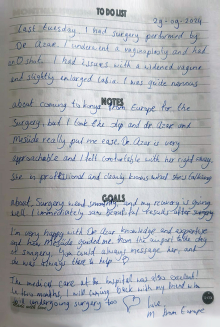 TO DO LIST
29-09-2024
Last tuesday, I had surgery performed by
Dr. Acar. I underwent a vaginoplasty and had
I had issues with a widened vagina
and slightly enlarged labia. I was quite nervous
about coming to Turkey from Europe for the
NOTES
Surgery, but I took the step and dr Acar and
Meside really put me ease. Dr Acar is very
approachable and I felt comfortable with her right away.
She is professional and clearly knows what she's talking
GOALS
About. Surgery went smoothly and my recovery is going
well. I immediately saw beautiful results after surgery
I'm very happy with Dr Acar knowledge and expertise
and how Meside guided me from the airport
surgery. You could always message her, and
she was always there to help!
The medical care at the hospital was also excellent!
months, I will coming back with my friend who
undergoing surgery too
Love,
M from Europe